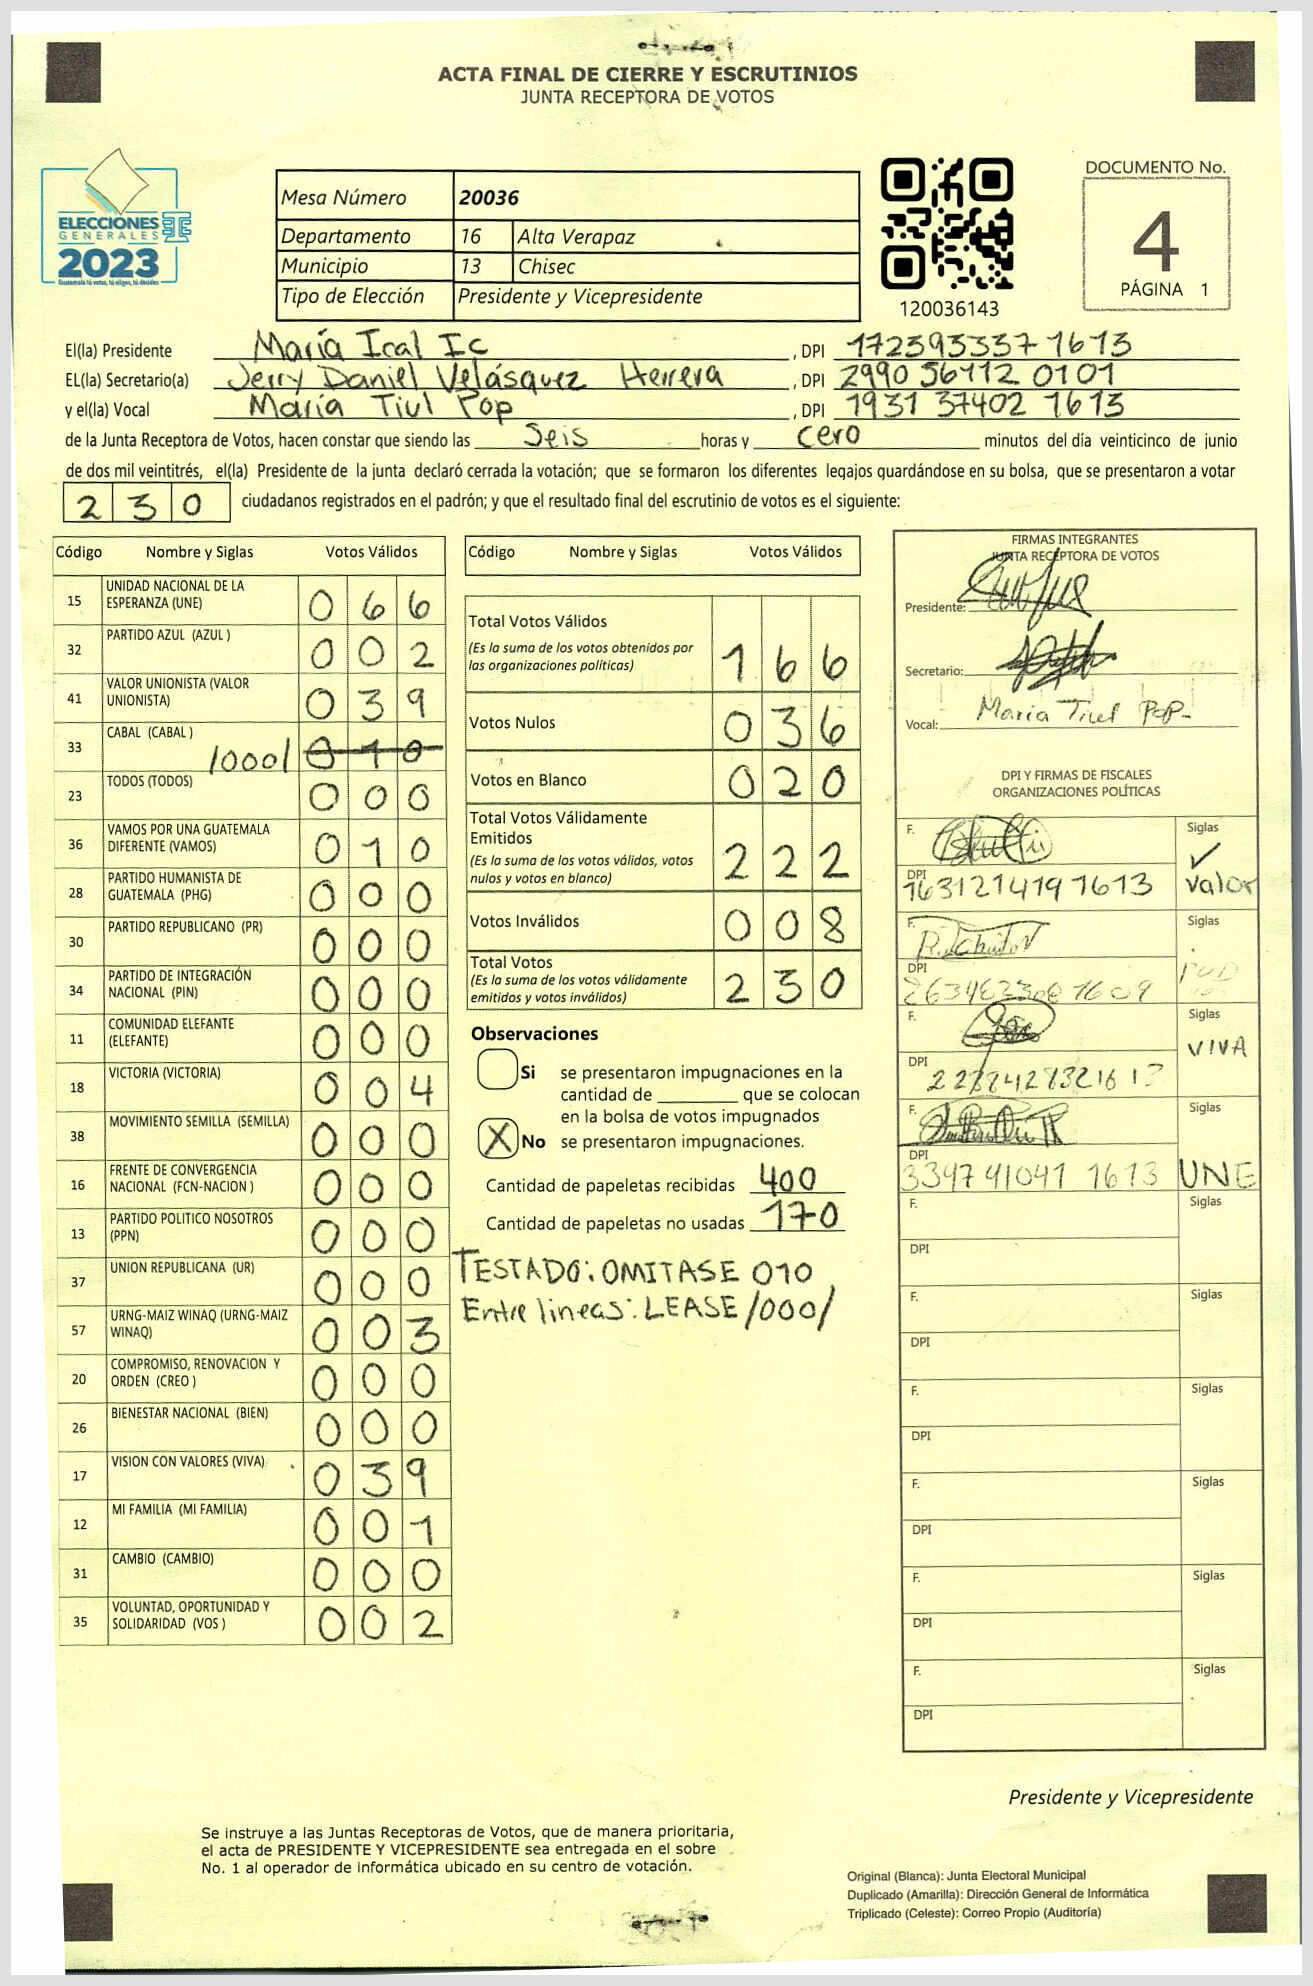 ACTA FINAL DE CIERRE Y ESCRUTINIOS
JUNTA RECEPTORA DE VOTOS
ELECCIONES
GENERALES
2023
Guatemala tú votas, tú eliges, tú decides
Mesa Número 20036
Departamento 16 Alta Verapaz
Municipio 13 Chisec
Tipo de Elección Presidente y Vicepresidente
120036143
DOCUMENTO No.
4
PÁGINA 1
El(la) Presidente María Ical Ic , DPI 172393337 1613
EL(la) Secretario(a) Jerry Daniel Velásquez Herrera , DPI 2990 56112 0101
y el(la) Vocal María Tiul Pop , DPI 1931 37402 1613
de la Junta Receptora de Votos, hacen constar que siendo las Seis horas y cero minutos del día veinticinco de junio
de dos mil veintitrés, el(la) Presidente de la junta declaró cerrada la votación; que se formaron los diferentes legajos guardándose en su bolsa, que se presentaron a votar
230 ciudadanos registrados en el padrón; y que el resultado final del escrutinio de votos es el siguiente:
Código Nombre y Siglas Votos Válidos
15 UNIDAD NACIONAL DE LA ESPERANZA (UNE) 066
32 PARTIDO AZUL (AZUL ) 002
41 VALOR UNIONISTA (VALOR UNIONISTA) 039
33 CABAL (CABAL ) /000/ 010
23 TODOS (TODOS) 000
36 VAMOS POR UNA GUATEMALA DIFERENTE (VAMOS) 010
28 PARTIDO HUMANISTA DE GUATEMALA (PHG) 000
30 PARTIDO REPUBLICANO (PR) 000
34 PARTIDO DE INTEGRACIÓN NACIONAL (PIN) 000
11 COMUNIDAD ELEFANTE (ELEFANTE) 000
18 VICTORIA (VICTORIA) 004
38 MOVIMIENTO SEMILLA (SEMILLA) 000
16 FRENTE DE CONVERGENCIA NACIONAL (FCN-NACION ) 000
13 PARTIDO POLITICO NOSOTROS (PPN) 000
37 UNION REPUBLICANA (UR) 000
57 URNG-MAIZ WINAQ (URNG-MAIZ WINAQ) 003
20 COMPROMISO, RENOVACION Y ORDEN (CREO ) 000
26 BIENESTAR NACIONAL (BIEN) 000
17 VISION CON VALORES (VIVA) 039
12 MI FAMILIA (MI FAMILIA) 001
31 CAMBIO (CAMBIO) 000
35 VOLUNTAD, OPORTUNIDAD Y SOLIDARIDAD (VOS ) 002
Código Nombre y Siglas Votos Válidos
Total Votos Válidos 166
(Es la suma de los votos obtenidos por
las organizaciones políticas)
Votos Nulos 036
Votos en Blanco 020
Total Votos Válidamente
Emitidos 222
(Es la suma de los votos válidos, votos
nulos y votos en blanco)
Votos Inválidos 008
Total Votos 230
(Es la suma de los votos válidamente
emitidos y votos inválidos)
Observaciones
Si se presentaron impugnaciones en la
cantidad de ________ que se colocan
en la bolsa de votos impugnados
X No se presentaron impugnaciones.
Cantidad de papeletas recibidas 400
Cantidad de papeletas no usadas 170
TESTADO: OMITASE 010
Entre lineas: LEASE /000/
FIRMAS INTEGRANTES
JUNTA RECEPTORA DE VOTOS
Presidente:
Secretario:
Vocal: María Tiul Pop-
DPI Y FIRMAS DE FISCALES
ORGANIZACIONES POLÍTICAS
F. Siglas
DPI 163121419 1613 Valor
F. Siglas
DPI
F. Siglas
DPI VIVA
F. Siglas
DPI 3347 41041 1613 UNE
F. Siglas
DPI
F. Siglas
DPI
F. Siglas
DPI
F. Siglas
DPI
F. Siglas
DPI
F. Siglas
DPI
Presidente y Vicepresidente
Se instruye a las Juntas Receptoras de Votos, que de manera prioritaria,
el acta de PRESIDENTE Y VICEPRESIDENTE sea entregada en el sobre
No. 1 al operador de informática ubicado en su centro de votación.
Original (Blanca): Junta Electoral Municipal
Duplicado (Amarilla): Dirección General de Informática
Triplicado (Celeste): Correo Propio (Auditoría)